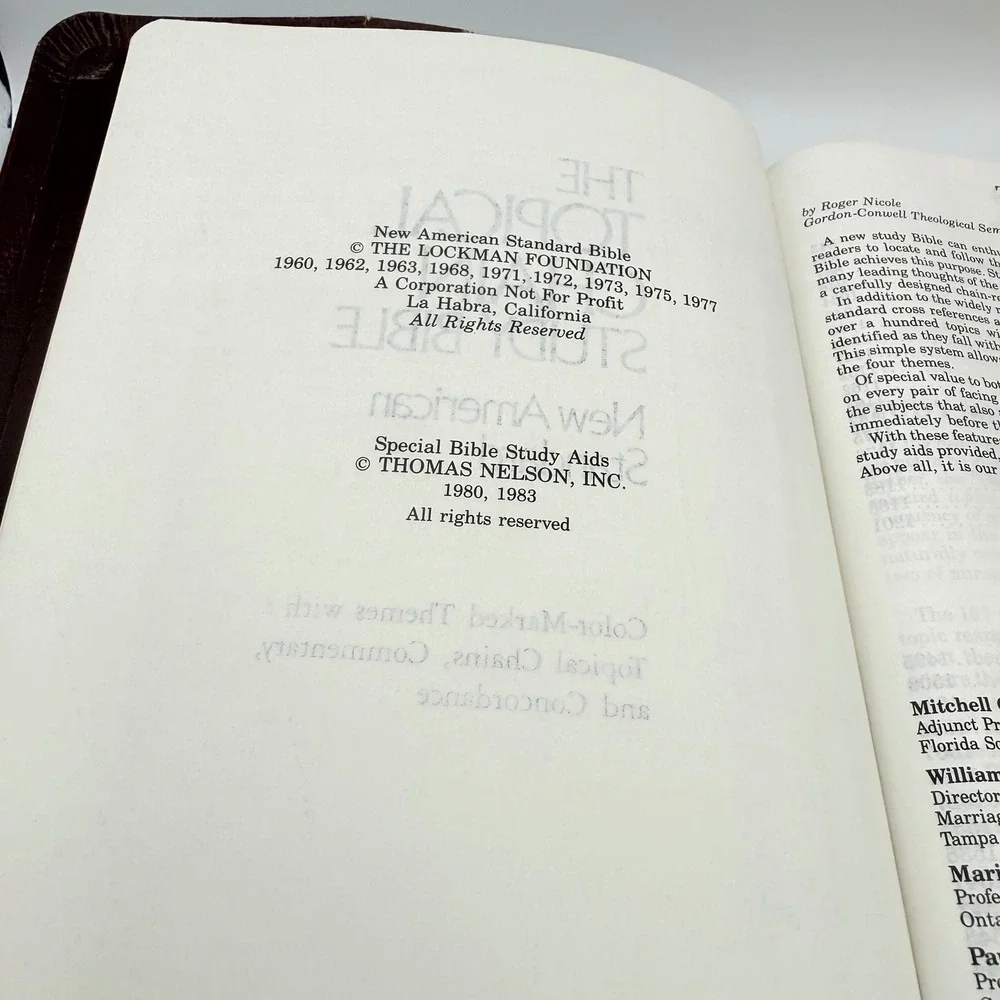 New American Standard Bible
© THE LOCKMAN FOUNDATION
1960, 1962, 1963, 1968, 1971, 1972, 1973, 1975, 1977
A Corporation Not For Profit
La Habra, California
All Rights Reserved
Special Bible Study Aids
© THOMAS NELSON, INC.
1980, 1983
All rights reserved
THE
TOPICAL
STUDY BIBLE
New American
Color-Marked Themes with
Topical Chains, Commentary,
and Concordance
by Roger Nicole
Gordon-Conwell Theological Sem
A new study Bible can enthu
readers to locate and follow th
Bible achieves this purpose. St
many leading thoughts of the
a carefully designed chain-re
In addition to the widely r
standard cross references a
over a hundred topics wi
identified as they fall with
This simple system allow
the four themes.
Of special value to bot
on every pair of facing
the subjects that also
immediately before th
With these feature
study aids provided,
Above all, it is our
Mitchell
Adjunct Pr
Florida So
William
Director
Marriag
Tampa
Mari
Profe
Onta
Pa
Pr